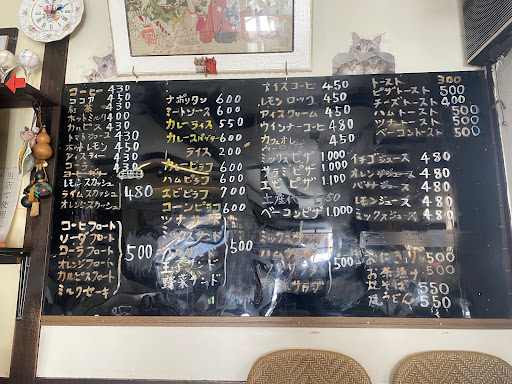 コーヒー 430
ココア 450
紅茶 430
ホットミルク 400
カルピス 430
レモンジュース 430
ホットレモン 450
アイスティー 430
コーラ 430
コーヒーゼリー
レモンスカッシュ
ライムスカッシュ 480
オレンジスカッシュ
コーヒフロート
ソーダフロート
コーラフロート 500
オレンジフロート
カルピスフロート
ミルクセーキ
ナポリタン 600
ミートソース 600
カレーライス 550
カレースパゲッティー 600
ライス 200
カレーピラフ 600
ハムピラフ 600
エビピラフ 700
コーンピラフ 600
ツナサンド
500
野菜サンド
アイスコーヒ 450
レモンロック 450
アイスクリーム 450
ウインナーコーヒ 480
カフェオレ 450
ミックスピザ 1,000
サラミピザ 1,000
エビピザ 1,100
土産代 50
ベーコンピザ 1,000
ミックスサラダ
ハムサラダ
ツナサラダ 500
野菜サラダ
トースト 300
ピザトースト 500
チーズトースト 400
ハムトースト 500
ツナトースト 500
ベーコントースト 500
イチゴジュース 480
オレンジジュース 480
バナナジュース 480
レモンジュース 480
ミックスジュース 480
おにぎり 500
お茶漬け 500
丸そば 550
丸うどん 550